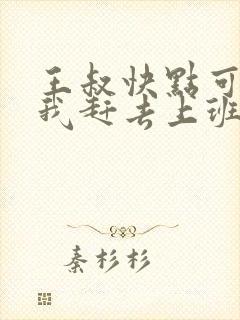 王叔快點可
我赶去上班
秦杉杉